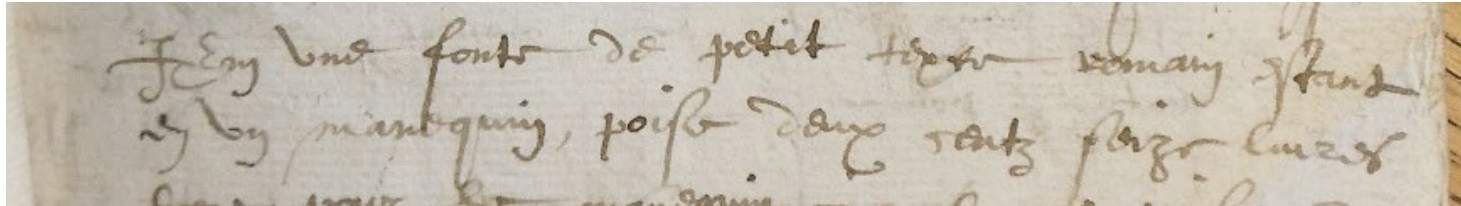 Item une fonte de petit texte romain estant
en un manequin, poise deux centz seize livres